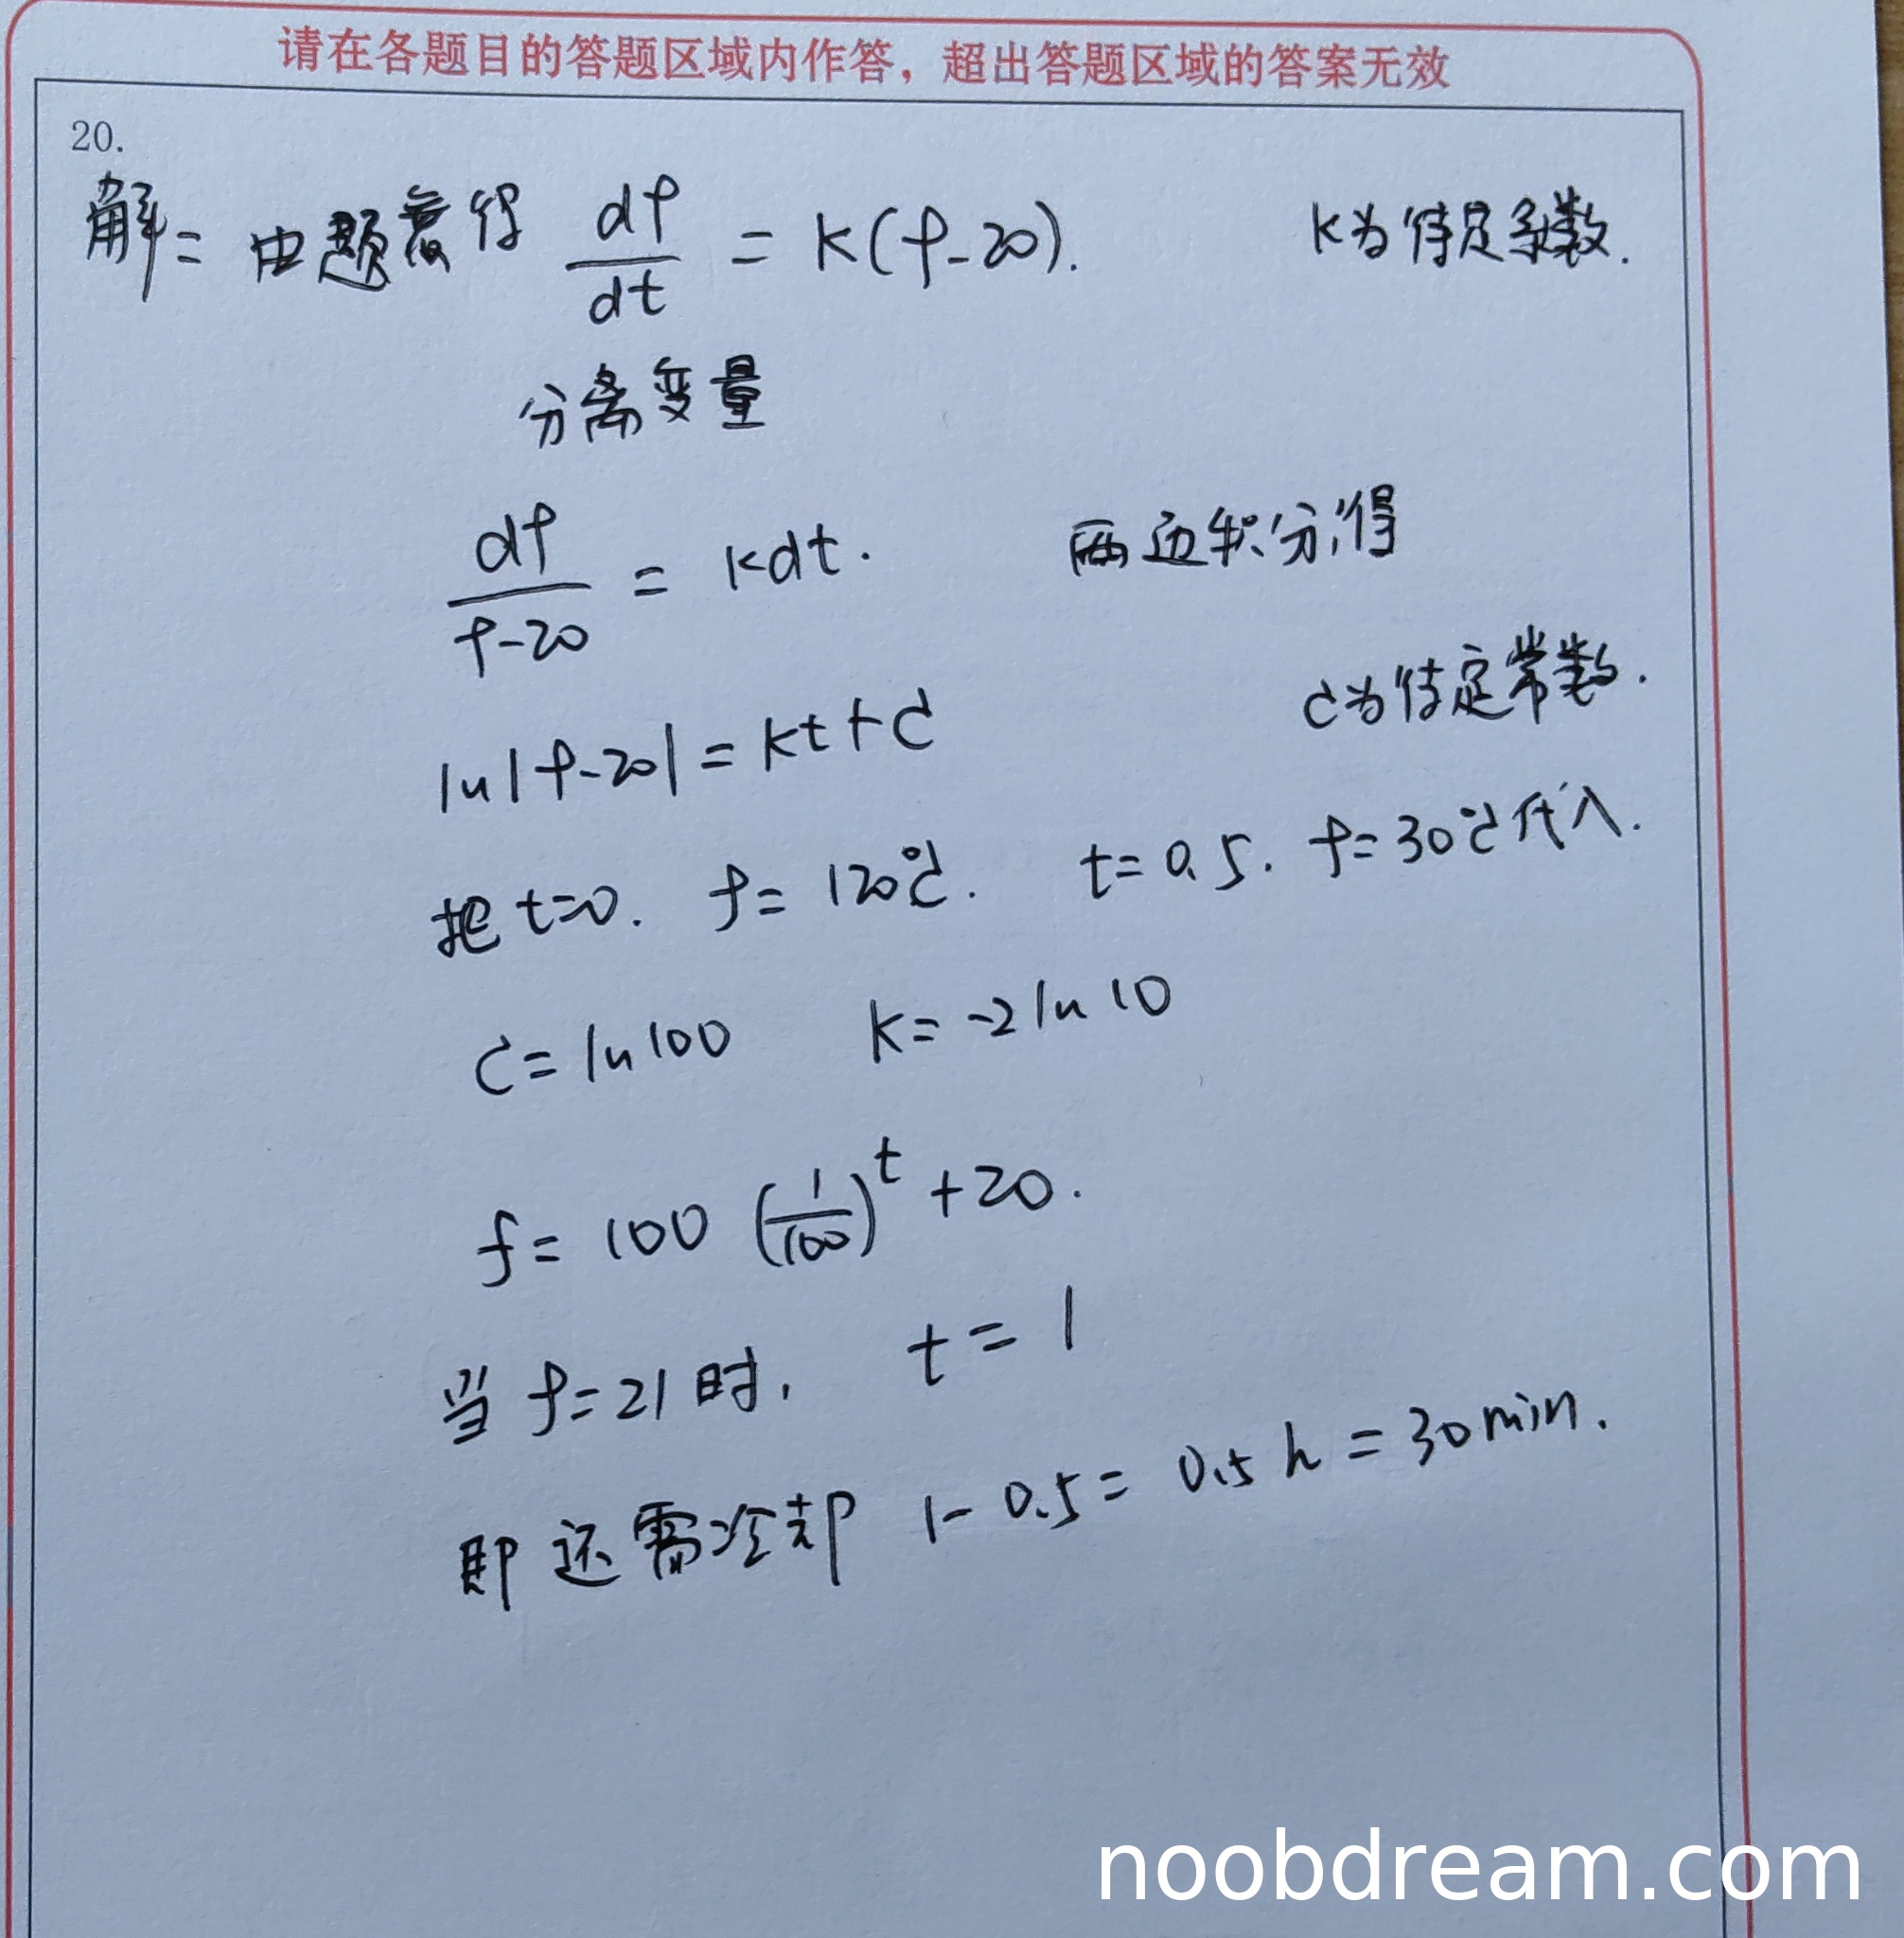 请在各题目的答题区域内作答，超出答题区域的答案无效
20.
解: 由题意得 df/dt = k(f-20). k为待定系数.
分离变量
df/(f-20) = kdt. 两边积分,得
ln|f-20| = kt+C C为待定常数.
把t=0. f=120℃. t=0.5. f=30℃代入.
C=ln100 k=-2ln10
f=100 (1/100)^t +20.
当f=21时, t=1
即还需冷却 1-0.5=0.5h=30min.
noobdream.com